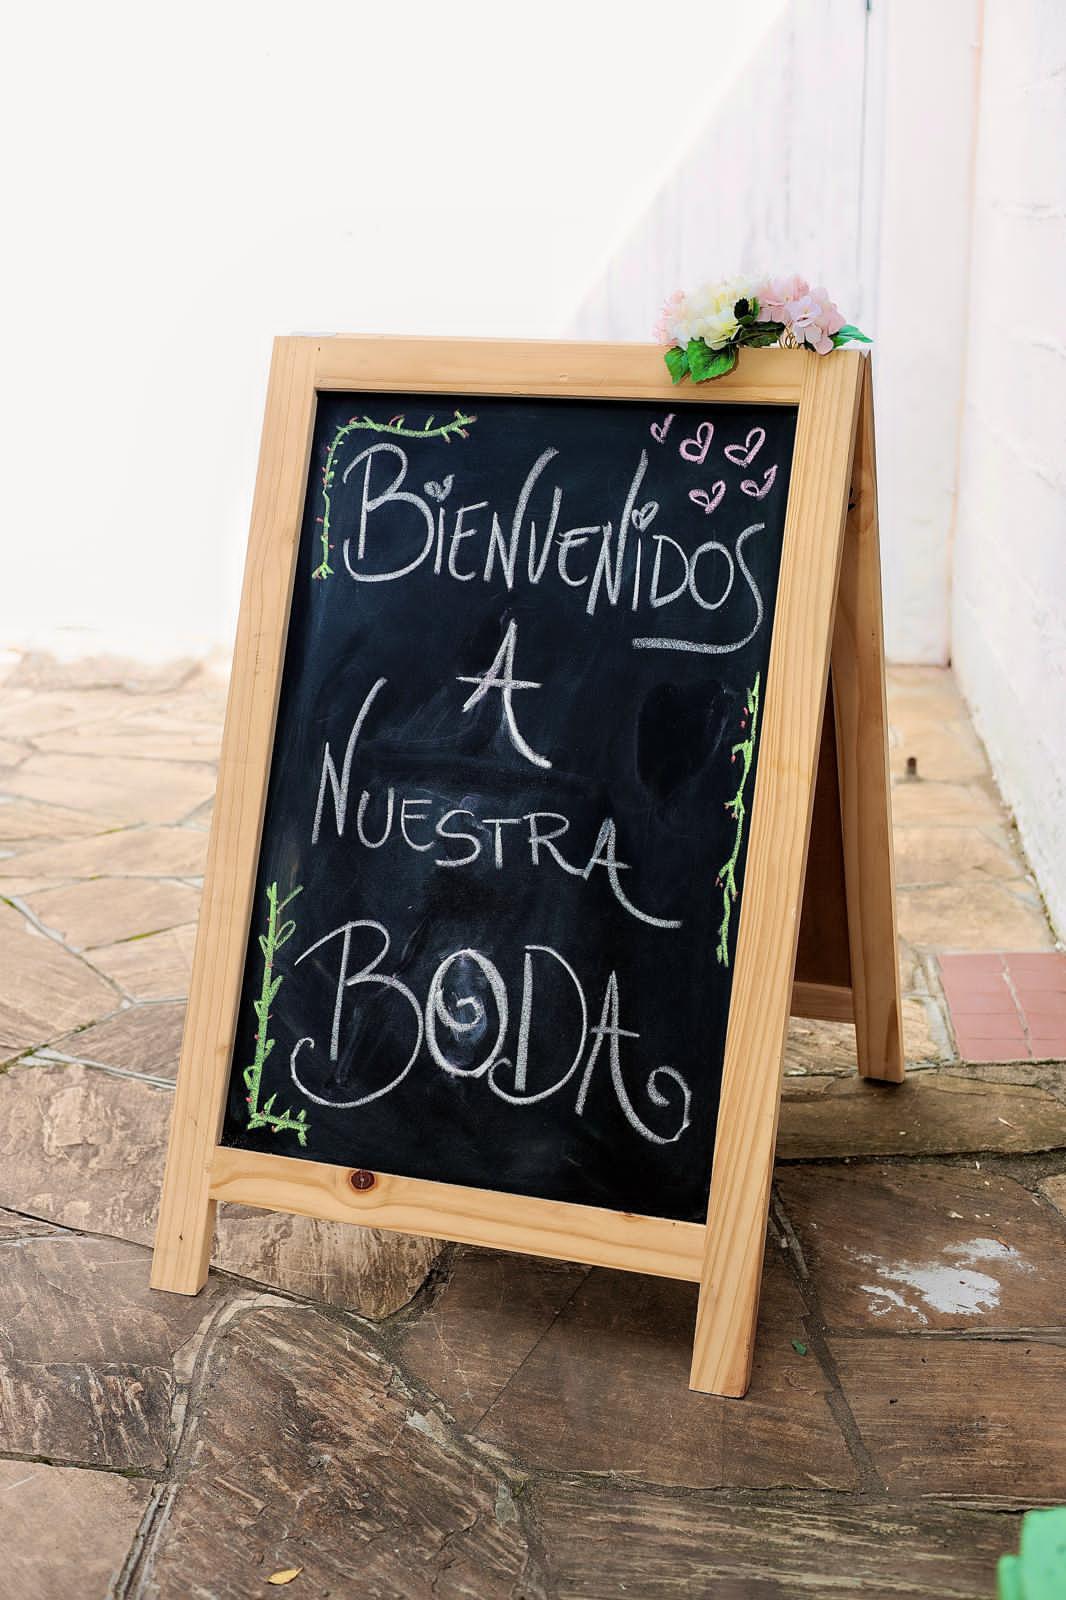 BIENVENIDOS
A
NUESTRA
BODA